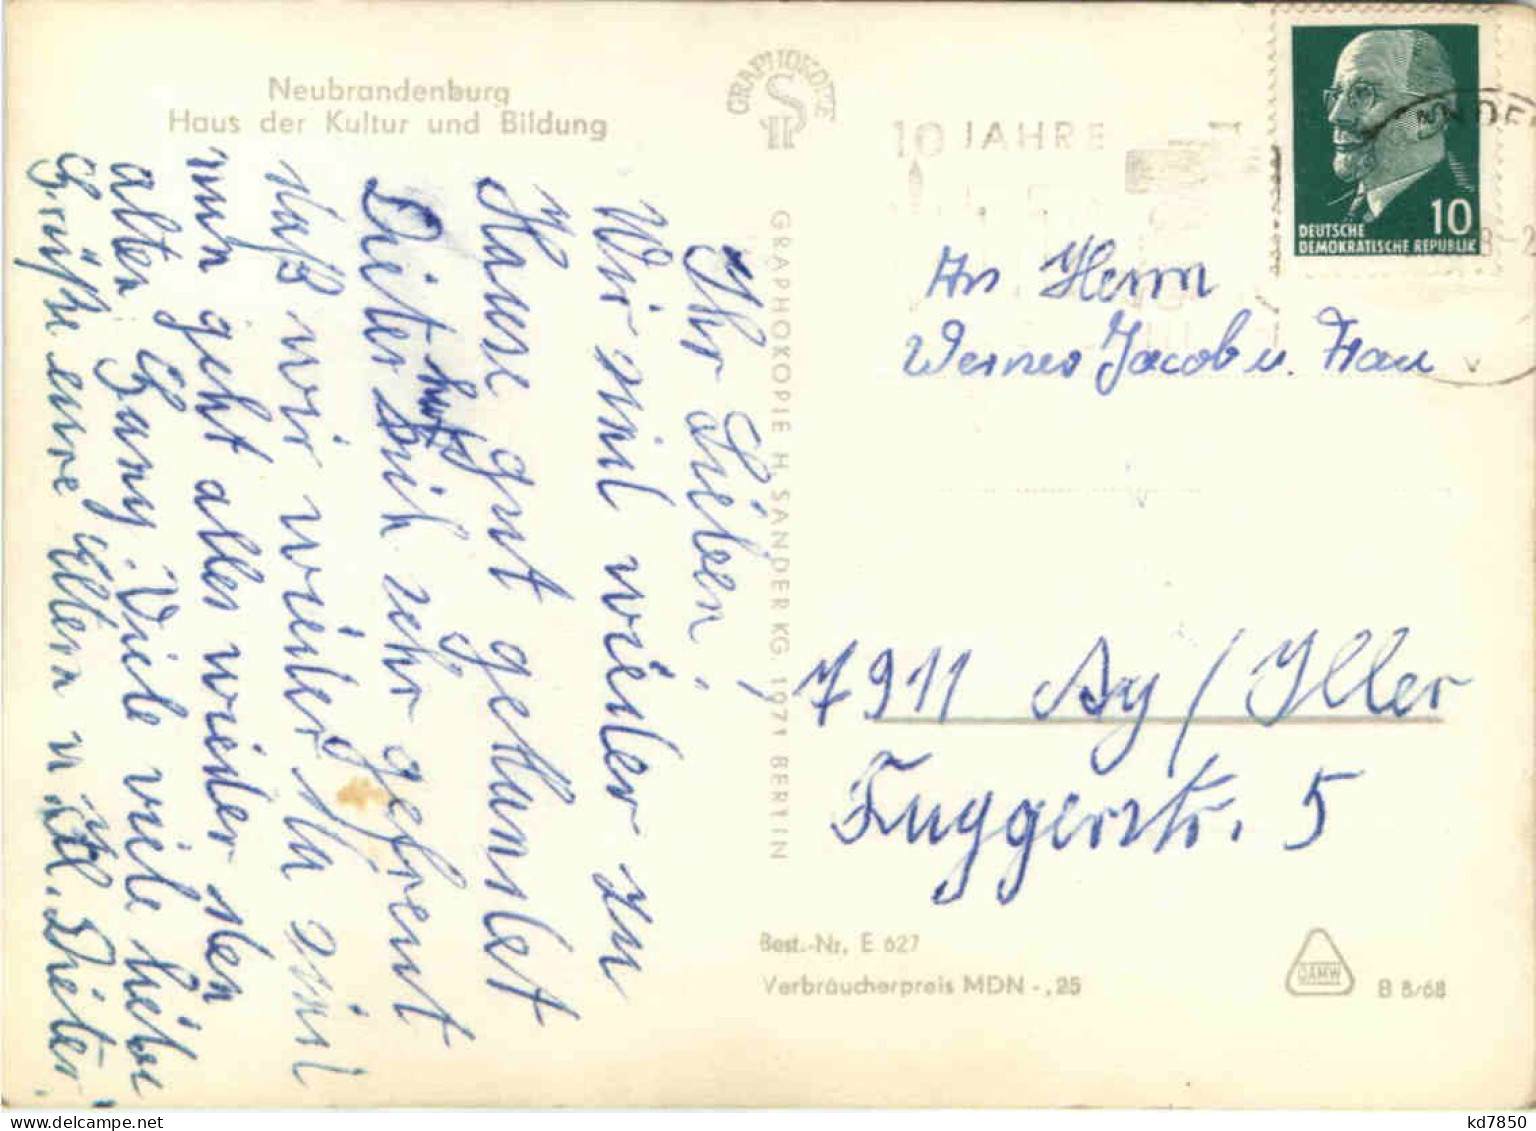 Neubrandenburg
Haus der Kultur und Bildung
GRAPHOKOPIE
H S
10 JAHRE
DEUTSCHE
DEMOKRATISCHE REPUBLIK
10
An Herrn
Werner Jacob u. Frau
7911 Ay/Iller
Fuggerstr. 5
GRAPHOKOPIE H. SANDER KG. 1071 BERLIN
Ihr Lieben!
Wir sind wieder zu
Hause gut gelandet
Dieter hat sich sehr gefreut
daß wir wieder da sind
nun geht alles wieder den
alten Gang. Viele viele liebe
Grüße eure Eltern u. Dieter.
Best.-Nr. E 627
Verbraucherpreis MDN -,25
DAMW
B 8/68
kd7850